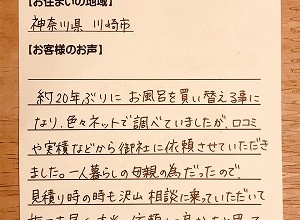 【お住まいの地域】
神奈川県 川崎市
【お客様のお声】
約20年ぶりに お風呂を買い替える事に
なり、色々ネットで調べていましたが、口コミ
や実積などから御社に依頼させていただき
ました。一人暮らしの母親の為だったので、
見積り時の時も沢山 相談に乗っていただいて